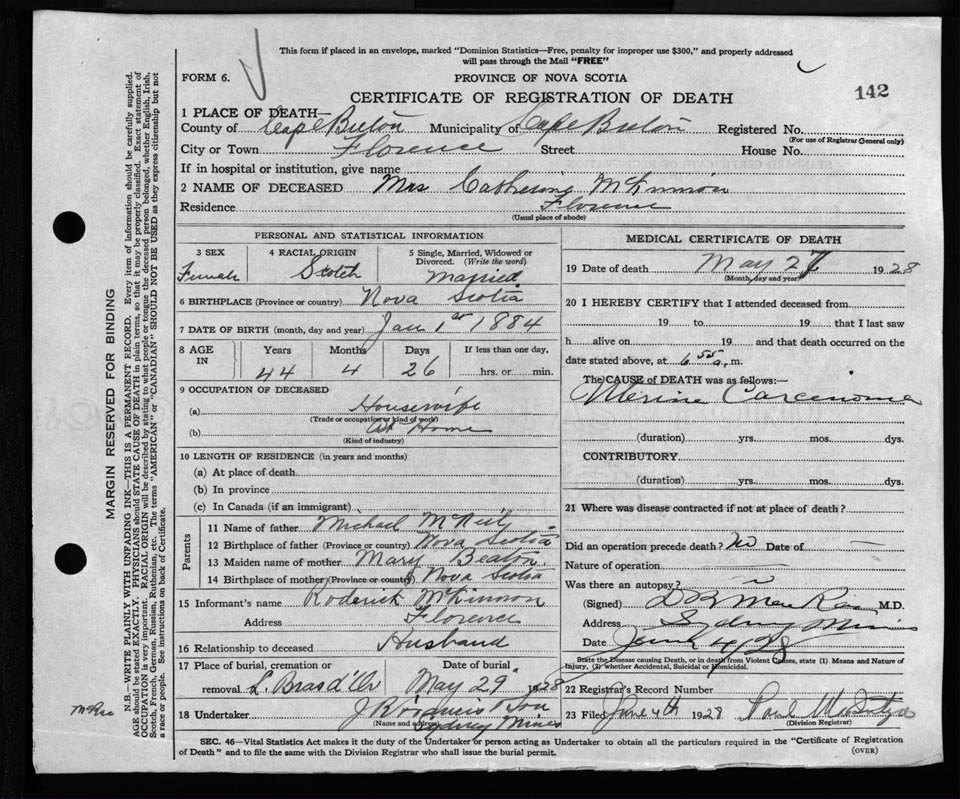 This form if placed in an envelope, marked "Dominion Statistics—Free, penalty for improper use $300," and properly addressed
will pass through the Mail "FREE"
FORM 6.
PROVINCE OF NOVA SCOTIA
CERTIFICATE OF REGISTRATION OF DEATH
142
1 PLACE OF DEATH—
County of Cape Breton Municipality of Cape Breton Registered No.
(For use of Registrar General only)
City or Town Florence Street House No.
If in hospital or institution, give name
2 NAME OF DECEASED Mrs Catherine McKinnon
Residence Florence
(Usual place of abode)
PERSONAL AND STATISTICAL INFORMATION
3 SEX 4 RACIAL ORIGIN 5 Single, Married, Widowed or Divorced. (Write the word)
Female Scotch Married
6 BIRTHPLACE (Province or country) Nova Scotia
7 DATE OF BIRTH (month, day and year) Jan 1st 1884
8 AGE IN Years Months Days If less than one day,
44 4 26 hrs. or min.
9 OCCUPATION OF DECEASED
(a) Housewife
(Trade or occupation or kind of work)
(b) At Home
(Kind of industry)
10 LENGTH OF RESIDENCE (in years and months)
(a) At place of death
(b) In province
(c) In Canada (if an immigrant)
Parents
11 Name of father Michael McNeil
12 Birthplace of father (Province or country) Nova Scotia
13 Maiden name of mother Mary Beaton
14 Birthplace of mother (Province or country) Nova Scotia
15 Informant's name Roderick McKinnon
Address Florence
16 Relationship to deceased Husband
17 Place of burial, cremation or removal Date of burial
L. Bras d'Or May 29" 1928
18 Undertaker Son
(Name and address) Sydney Mines
MEDICAL CERTIFICATE OF DEATH
19 Date of death May 27 1928
(Month, day and year)
20 I HEREBY CERTIFY that I attended deceased from
19 to 19 that I last saw
h alive on 19 and that death occurred on the
date stated above, at 6 55 a. m.
The CAUSE of DEATH was as follows:—
Uterine Carcinoma
(duration) yrs. mos. dys.
CONTRIBUTORY
(duration) yrs. mos. dys.
21 Where was disease contracted if not at place of death?
Did an operation precede death? no Date of
Nature of operation
Was there an autopsy?
(Signed) M.D.
Address Sydney Mines
Date June 4/28
State the Disease causing Death, or in death from Violent Causes, state (1) Means and Nature of
Injury, (2) whether Accidental, Suicidal or Homicidal.
22 Registrar's Record Number
23 Filed June 4th 1928 Paul
(Division Registrar)
SEC. 46—Vital Statistics Act makes it the duty of the Undertaker or person acting as Undertaker to obtain all the particulars required in the "Certificate of Registration
of Death" and to file the same with the Division Registrar who shall issue the burial permit.
(OVER)
MARGIN RESERVED FOR BINDING
N.B.—WRITE PLAINLY WITH UNFADING INK—THIS IS A PERMANENT RECORD. Every item of information should be carefully supplied.
AGE should be stated EXACTLY. PHYSICIANS should STATE CAUSE OF DEATH in plain terms, so that it may be properly classified. Exact statement of
OCCUPATION is very important. RACIAL ORIGIN will be described by stating to what people or tongue the deceased person belonged, whether English, Irish,
Scotch, French, German, Russian, Ruthenian, etc. The terms "AMERICAN" or "CANADIAN" SHOULD NOT BE USED as they express citizenship but not
a race or people. See instructions on back of Certificate.